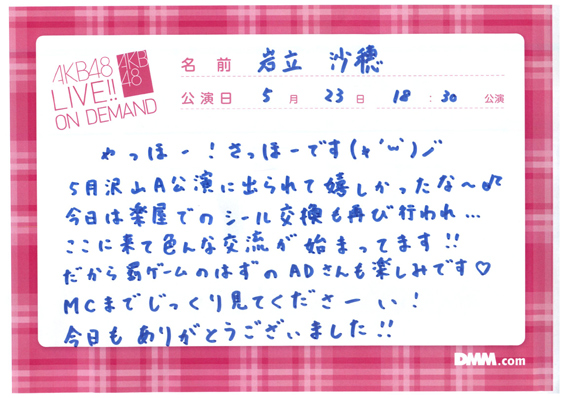 AKB48
LIVE!!
ON DEMAND
AKB
48
名前 岩立 沙穂
公演日 5月 23日 18:30 公演
やっほー!さっほーです(*'ω')ノ
5月沢山A公演に出られて嬉しかったな〜♪
今日は楽屋でのシール交換も再び行われ...
ここに来て色んな交流が始まってます!!
だから罰ゲームのはずのADさんも楽しみです♡
MCまでじっくり見てくださーい!
今日もありがとうございました!!
DMM.com